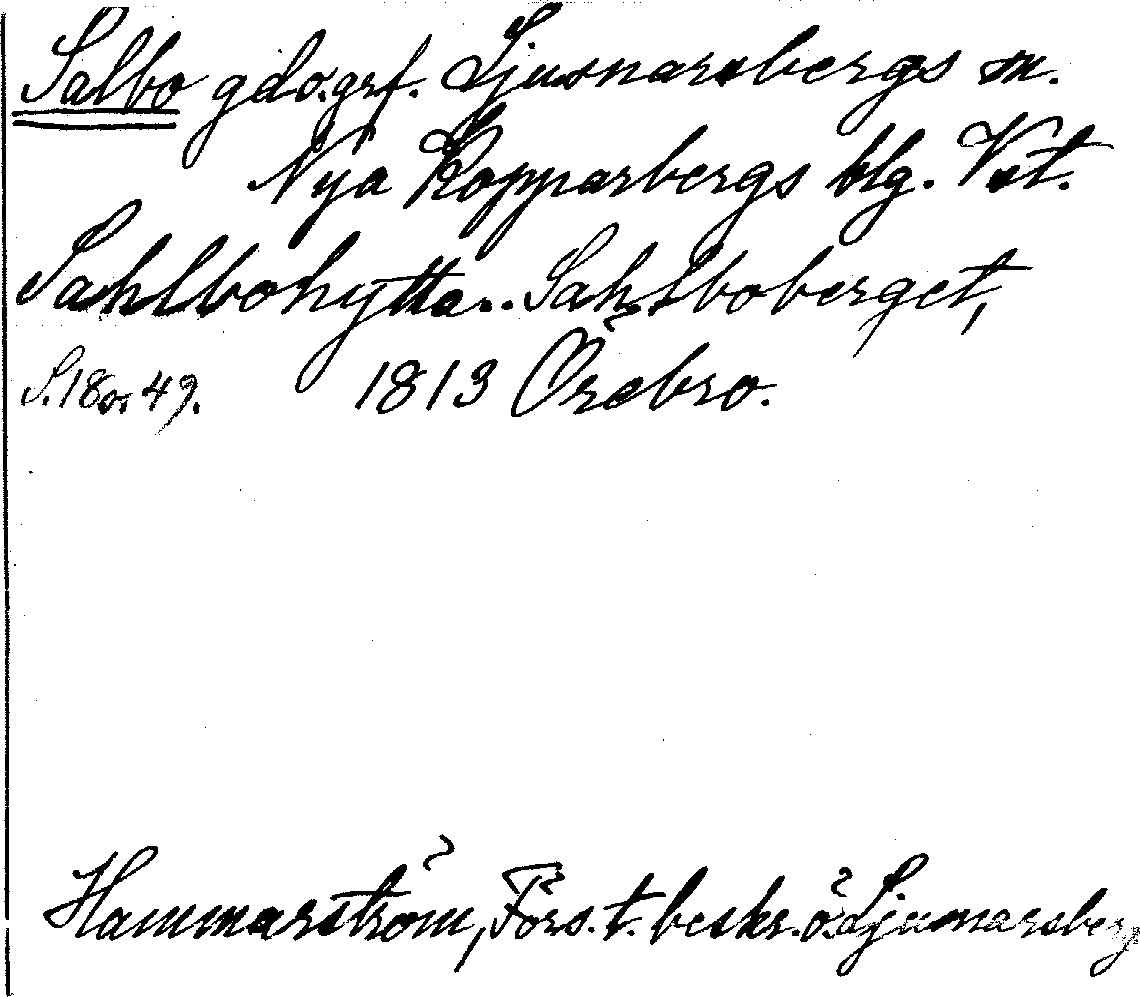 Salbo gd o. grf. Ljusnarsbergs sn.
Nya Kopparbergs blg. Vst.
Sahlbohytta.. Sahlboberget,
S. 18 o. 49. 1813 Örebro.
Hammarström, Förs. t. beskr. ö. Ljusnarsberg